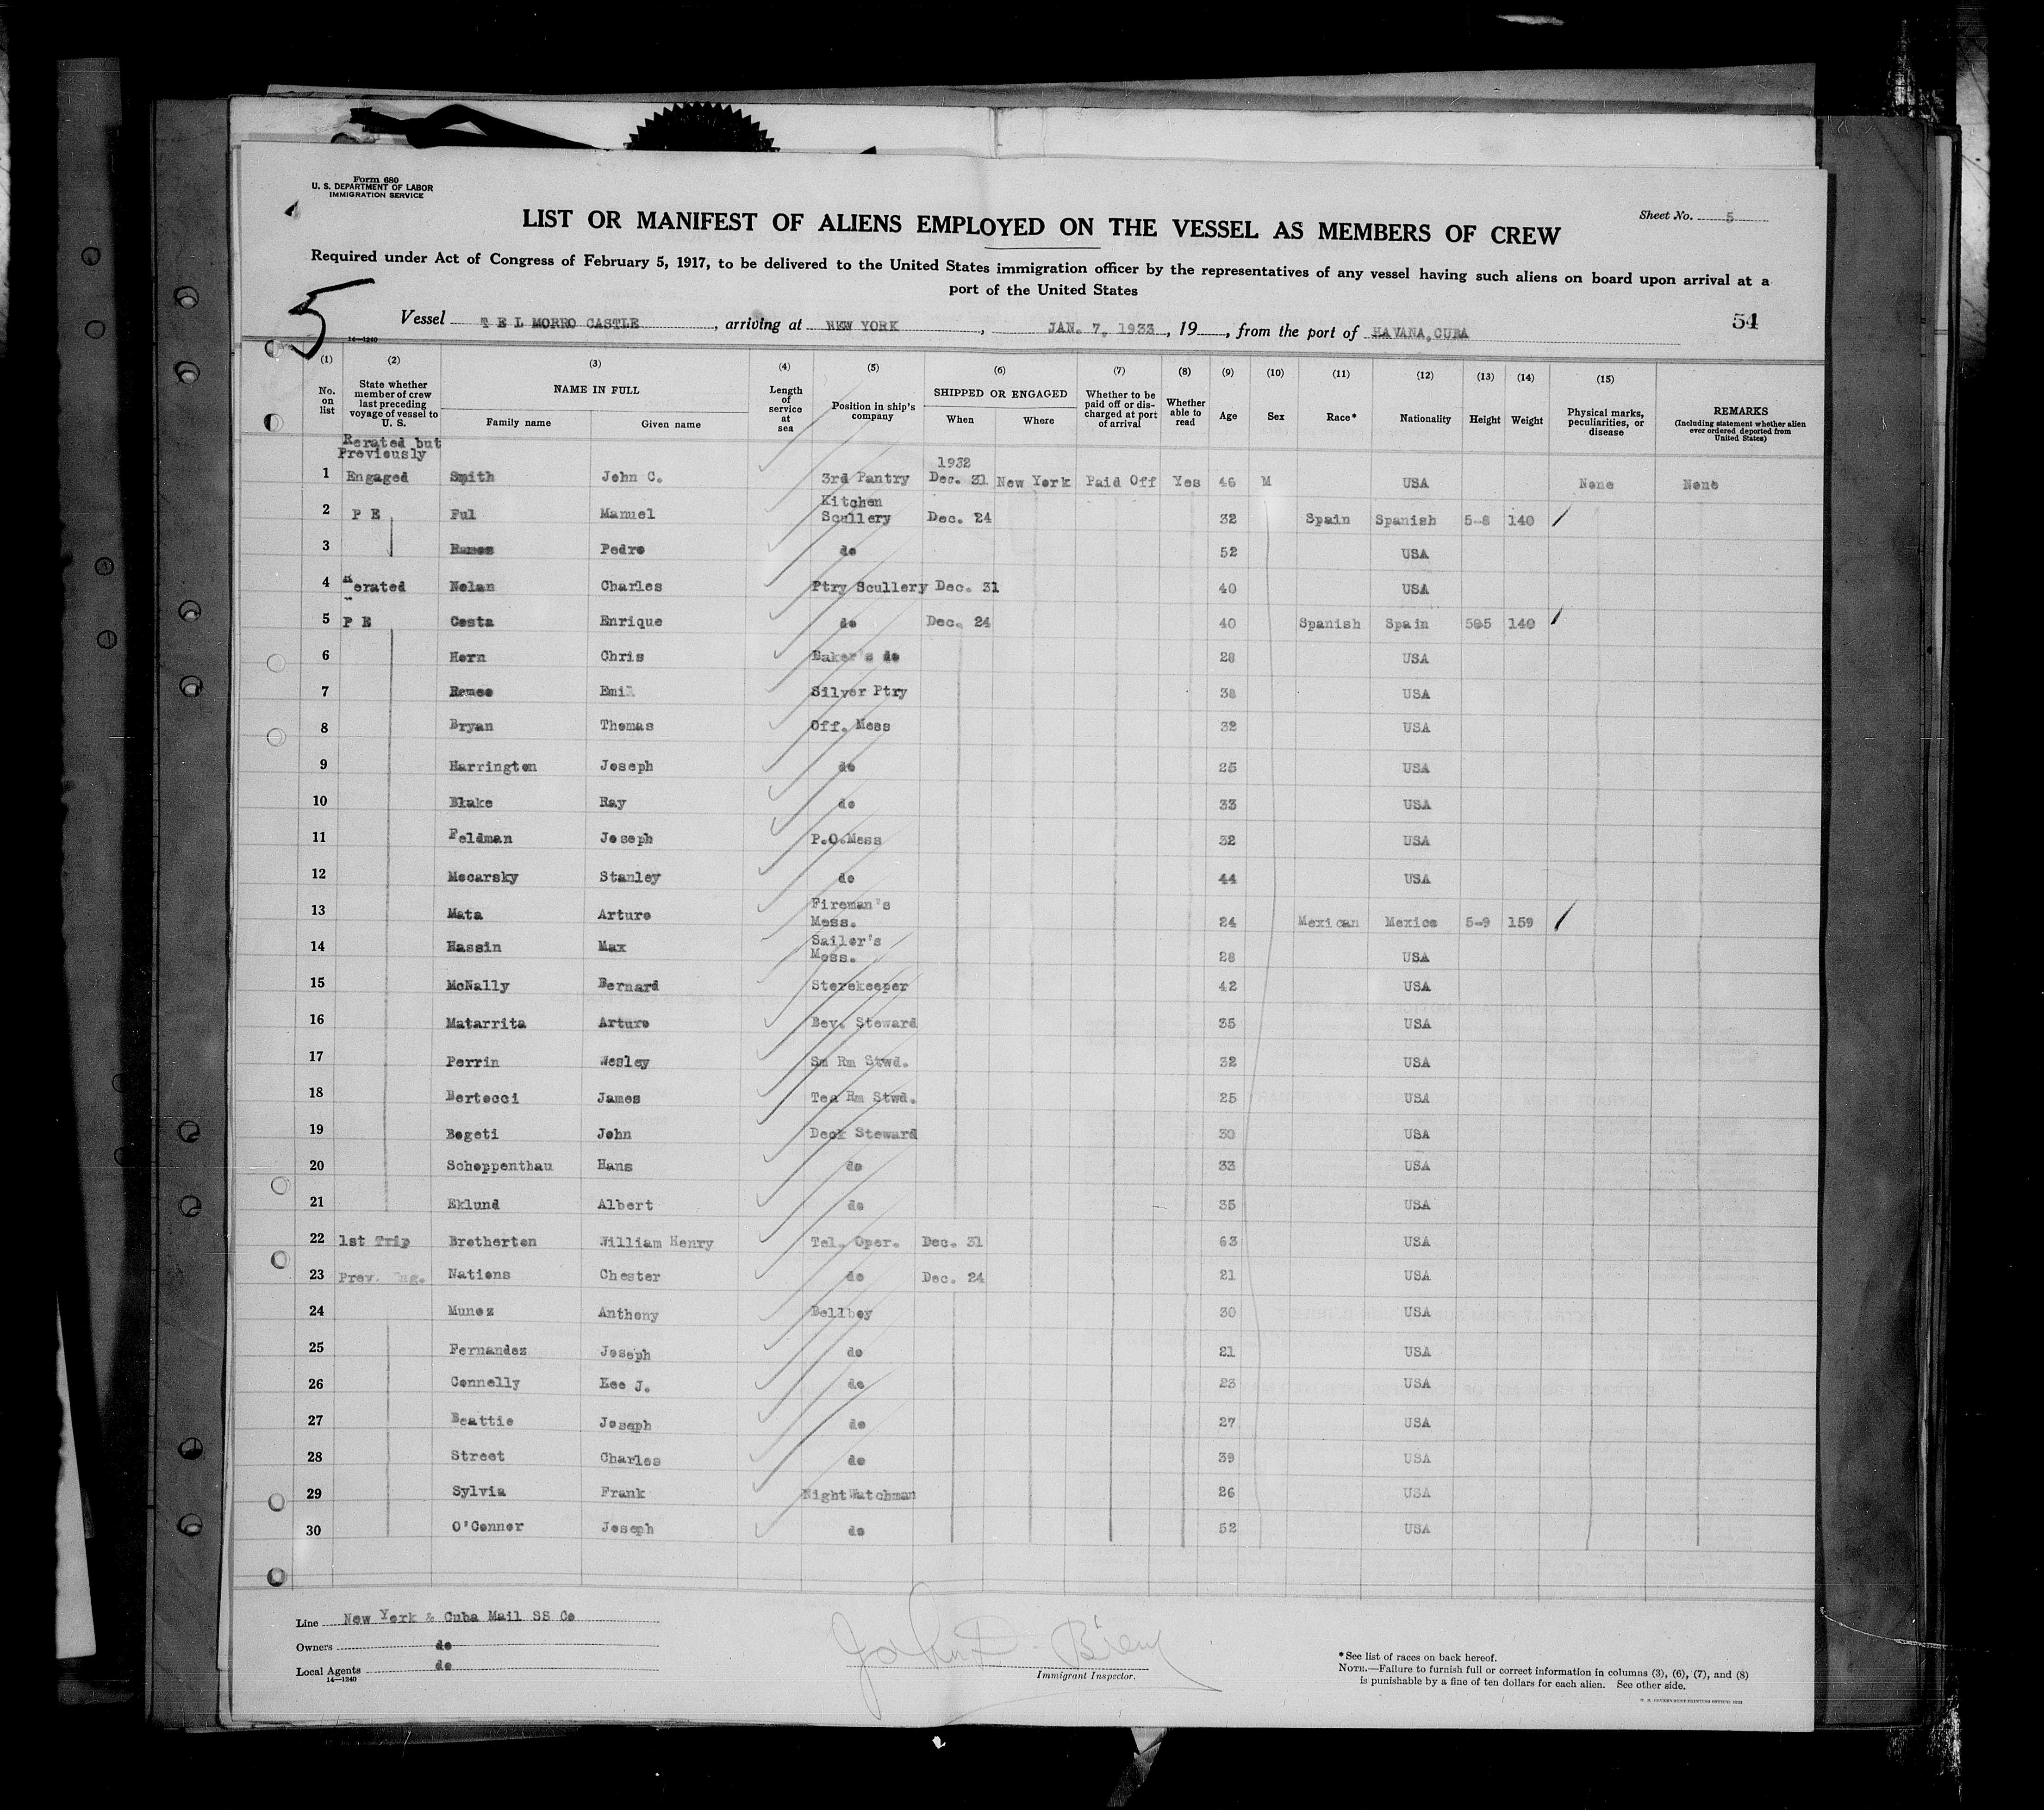 Form 680
U. S. DEPARTMENT OF LABOR
IMMIGRATION SERVICE
Sheet No. 5
LIST OR MANIFEST OF ALIENS EMPLOYED ON THE VESSEL AS MEMBERS OF CREW
Required under Act of Congress of February 5, 1917, to be delivered to the United States immigration officer by the representatives of any vessel having such aliens on board upon arrival at a
port of the United States
5
Vessel T E L MORRO CASTLE, arriving at NEW YORK, JAN. 7, 1933, 19, from the port of HAVANA, CUBA
51
14—1240
(1) (2) (3) (4) (5) (6) (7) (8) (9) (10) (11) (12) (13) (14) (15)
No. on list State whether member of crew last preceding voyage of vessel to U. S. NAME IN FULL Family name Given name Length of service at sea Position in ship's company SHIPPED OR ENGAGED When Where Whether to be paid off or discharged at port of arrival Whether able to read Age Sex Race* Nationality Height Weight Physical marks, peculiarities, or disease REMARKS (Including statement whether alien ever ordered deported from United States)
Rerated but
Previously
1932
1 Engaged Smith John C. 3rd Pantry Dec. 31 New York Paid Off Yes 46 M USA None None
2 P E Ful Manuel Kitchen Scullery Dec. 24 32 Spain Spanish 5-8 140
3 Ramos Pedro do 52 USA
4 Rerated Nolan Charles Ptry Scullery Dec. 31 40 USA
5 P E Costa Enrique do Dec. 24 40 Spanish Spain 505 140
6 Horn Chris Baker's do 28 USA
7 Emil Silver Ptry 38 USA
8 Bryan Thomas Off. Mess 32 USA
9 Harrington Joseph do 25 USA
10 Blake Ray do 33 USA
11 Feldman Joseph P.O.Mess 32 USA
12 Mocarsky Stanley do 44 USA
13 Mata Arturo Fireman's Mess. 24 Mexican Mexico 5-9 159
14 Hassin Max Sailor's Mess. 28 USA
15 McNally Bernard Storekeeper 42 USA
16 Matarrita Arturo Bev. Steward 35 USA
17 Perrin Wesley Sm Rm Stwd. 32 USA
18 Bertocci James Tea Rm Stwd. 25 USA
19 Bogeti John Deck Steward 30 USA
20 Schoppenthau Hans do 33 USA
21 Eklund Albert do 35 USA
22 1st Trip Brotherton William Henry Tel. Oper. Dec. 31 63 USA
23 Prev. Eng. Nations Chester do Dec. 24 21 USA
24 Munoz Anthony Bellboy 30 USA
25 Fernandez Joseph do 21 USA
26 Connolly Leo J. do 23 USA
27 Beattie Joseph do 27 USA
28 Street Charles do 39 USA
29 Sylvia Frank Night Watchman 26 USA
30 O'Connor Joseph do 52 USA
Line New York & Cuba Mail SS Co
Owners do
Local Agents do
14—1240
Immigrant Inspector.
*See list of races on back hereof.
NOTE.—Failure to furnish full or correct information in columns (3), (6), (7), and (8)
is punishable by a fine of ten dollars for each alien. See other side.